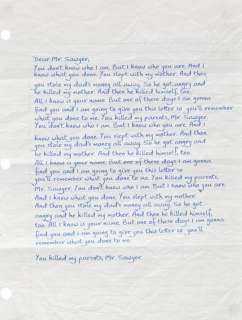 Dear Mr. Sawyer,
You don't know who I am. But I know who you are. And I
know what you done. You slept with my mother. And then
you stole my dad's money all away. So he got angry
and he killed my mother. And then he killed himself, too.
All I know is your name. But one of these days I am gonna
find you and I am going to give you this letter so you'll remember
what you done to me. You killed my parents, Mr. Sawyer.
You don't know who I am. But I know who you are. And I
know what you done. You slept with my mother. And then
you stole my dad's money all away. So he got angry
and he killed my mother. And then he killed himself, too.
All I know is your name. But one of these days I am gonna
find you and I am going to give you this letter so
you'll remember what you done to me. You killed my parents,
Mr. Sawyer. You don't know who I am. But I know who you are.
And I know what you done. You slept with my mother.
And then you stole my dad's money all away. So he got
angry and he killed my mother. And then he killed himself,
too. All I know is your name. But one of these days I am gonna
find you and I am going to give you this letter so you'll
remember what you done to me.
You killed my parents, Mr. Sawyer.